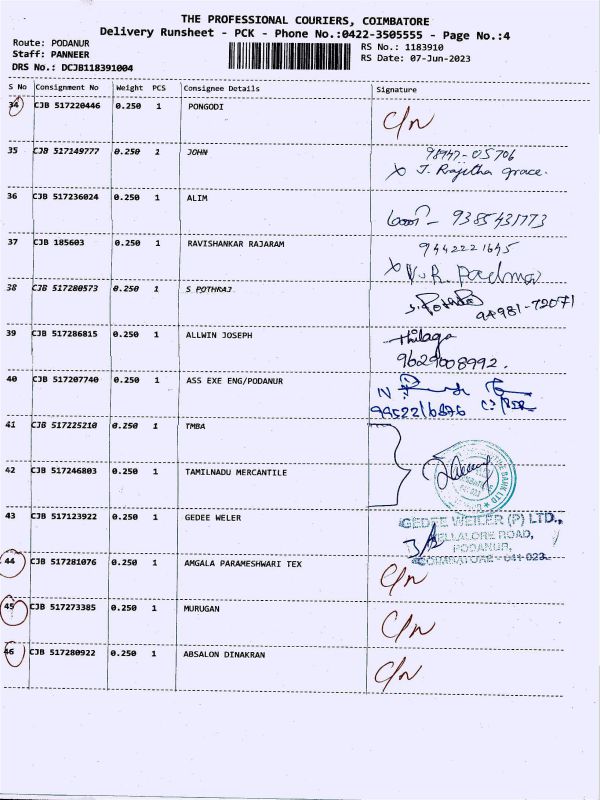 THE PROFESSIONAL COURIERS, COIMBATORE
Delivery Runsheet - PCK - Phone No.:0422-3505555 - Page No.:4
Route: PODANUR
Staff: PANNEER
DRS No.: DCJB118391004
RS No.: 1183910
RS Date: 07-Jun-2023
S No Consignment No Weight PCS Consignee Details Signature
34 CJB 517220446 0.250 1 PONGODI C/N
35 CJB 517149777 0.250 1 JOHN
98947-05706
X J. Rajitha grace.
36 CJB 517236024 0.250 1 ALIM
9385431773
37 CJB 185603 0.250 1 RAVISHANKAR RAJARAM
9442221645
X V.R. Padma
38 CJB 517280573 0.250 1 S POTHRAJ
S. Pothraj
94981-72071
39 CJB 517286815 0.250 1 ALLWIN JOSEPH
Thilaga
9629008992.
40 CJB 517207740 0.250 1 ASS EXE ENG/PODANUR
N
41 CJB 517225210 0.250 1 TMBA
42 CJB 517246803 0.250 1 TAMILNADU MERCANTILE
43 CJB 517123922 0.250 1 GEDEE WELER
GEDEE WEILER (P) LTD.,
ELLALORE ROAD,
PODANUR,
COIMBATORE - 641 023.
44 CJB 517281076 0.250 1 AMGALA PARAMESHWARI TEX C/N
45 CJB 517273385 0.250 1 MURUGAN C/N
46 CJB 517280922 0.250 1 ABSALON DINAKRAN C/N